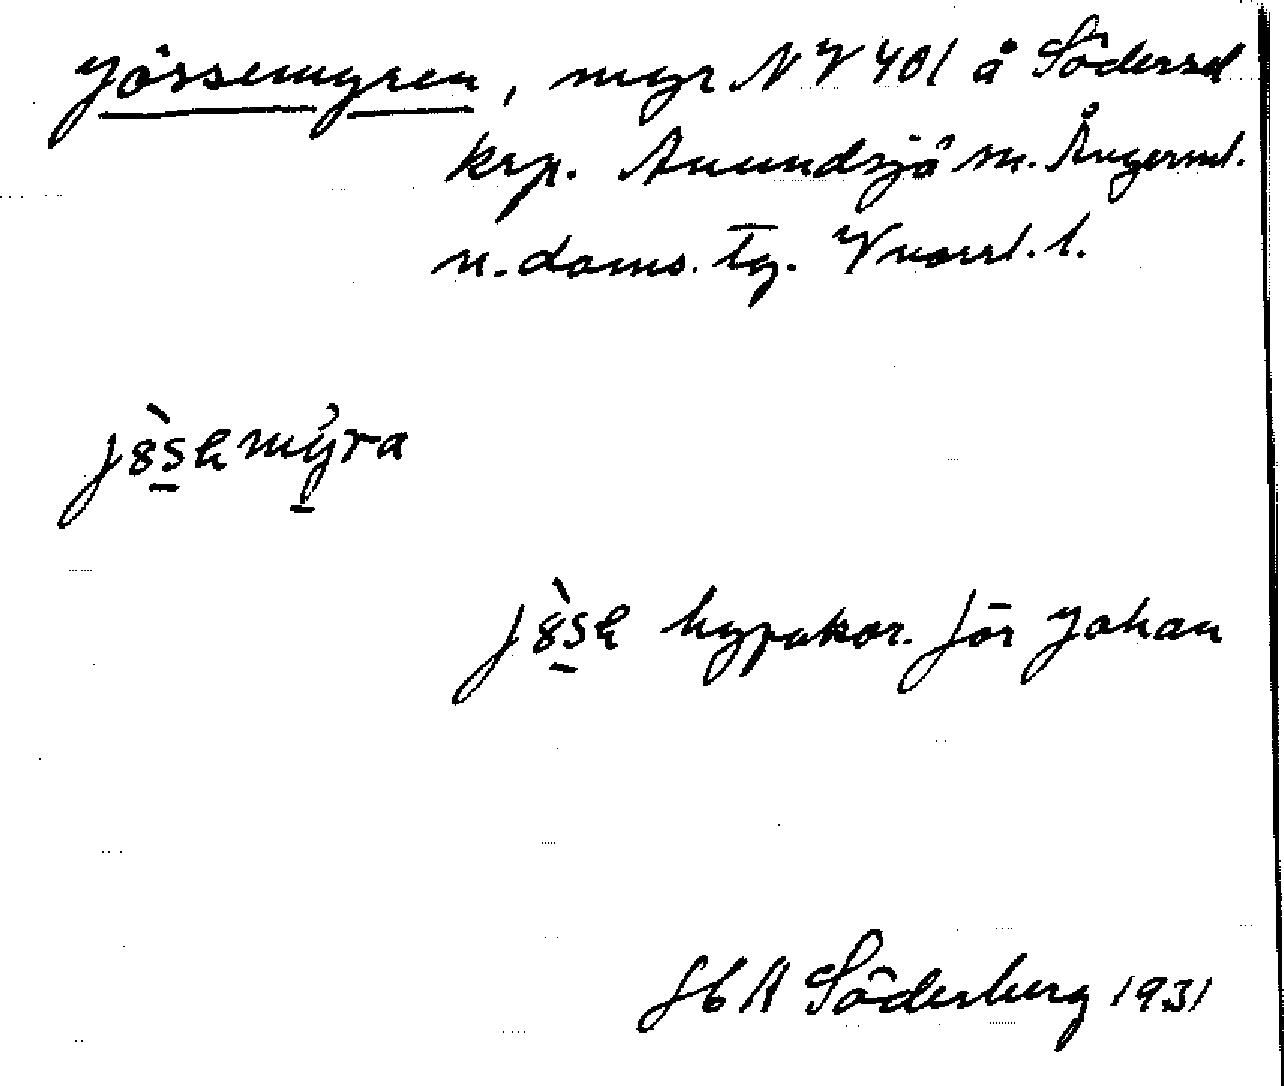 Jössemyren, myr NV 401 å Södersel
krp. Anundsjö sn. Ångerml.
n. doms. tg. Vnorrl. l.
hypokor. för Johan
Söderberg 1931